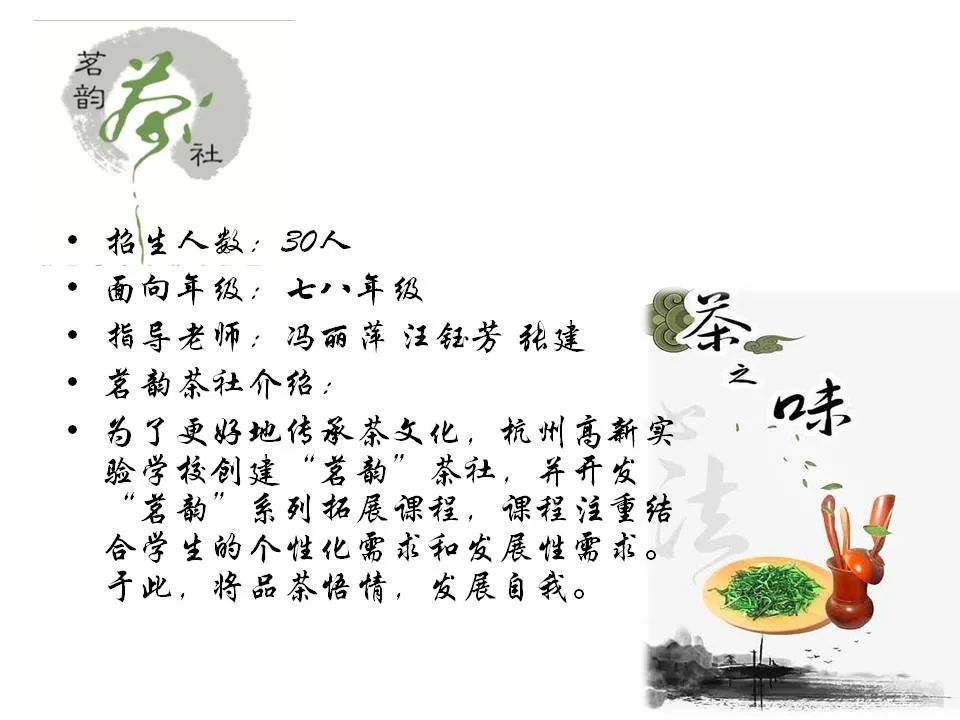 茗韵
茶
社
• 招生人数：30人
• 面向年级：七八年级
• 指导老师：冯丽萍 汪钰芳 张建
• 茗韵茶社介绍：
• 为了更好地传承茶文化，杭州高新实
验学校创建“茗韵”茶社，并开发
“茗韵”系列拓展课程，课程注重结
合学生的个性化需求和发展性需求。
于此，将品茶悟情，发展自我。
茶
之
味
法